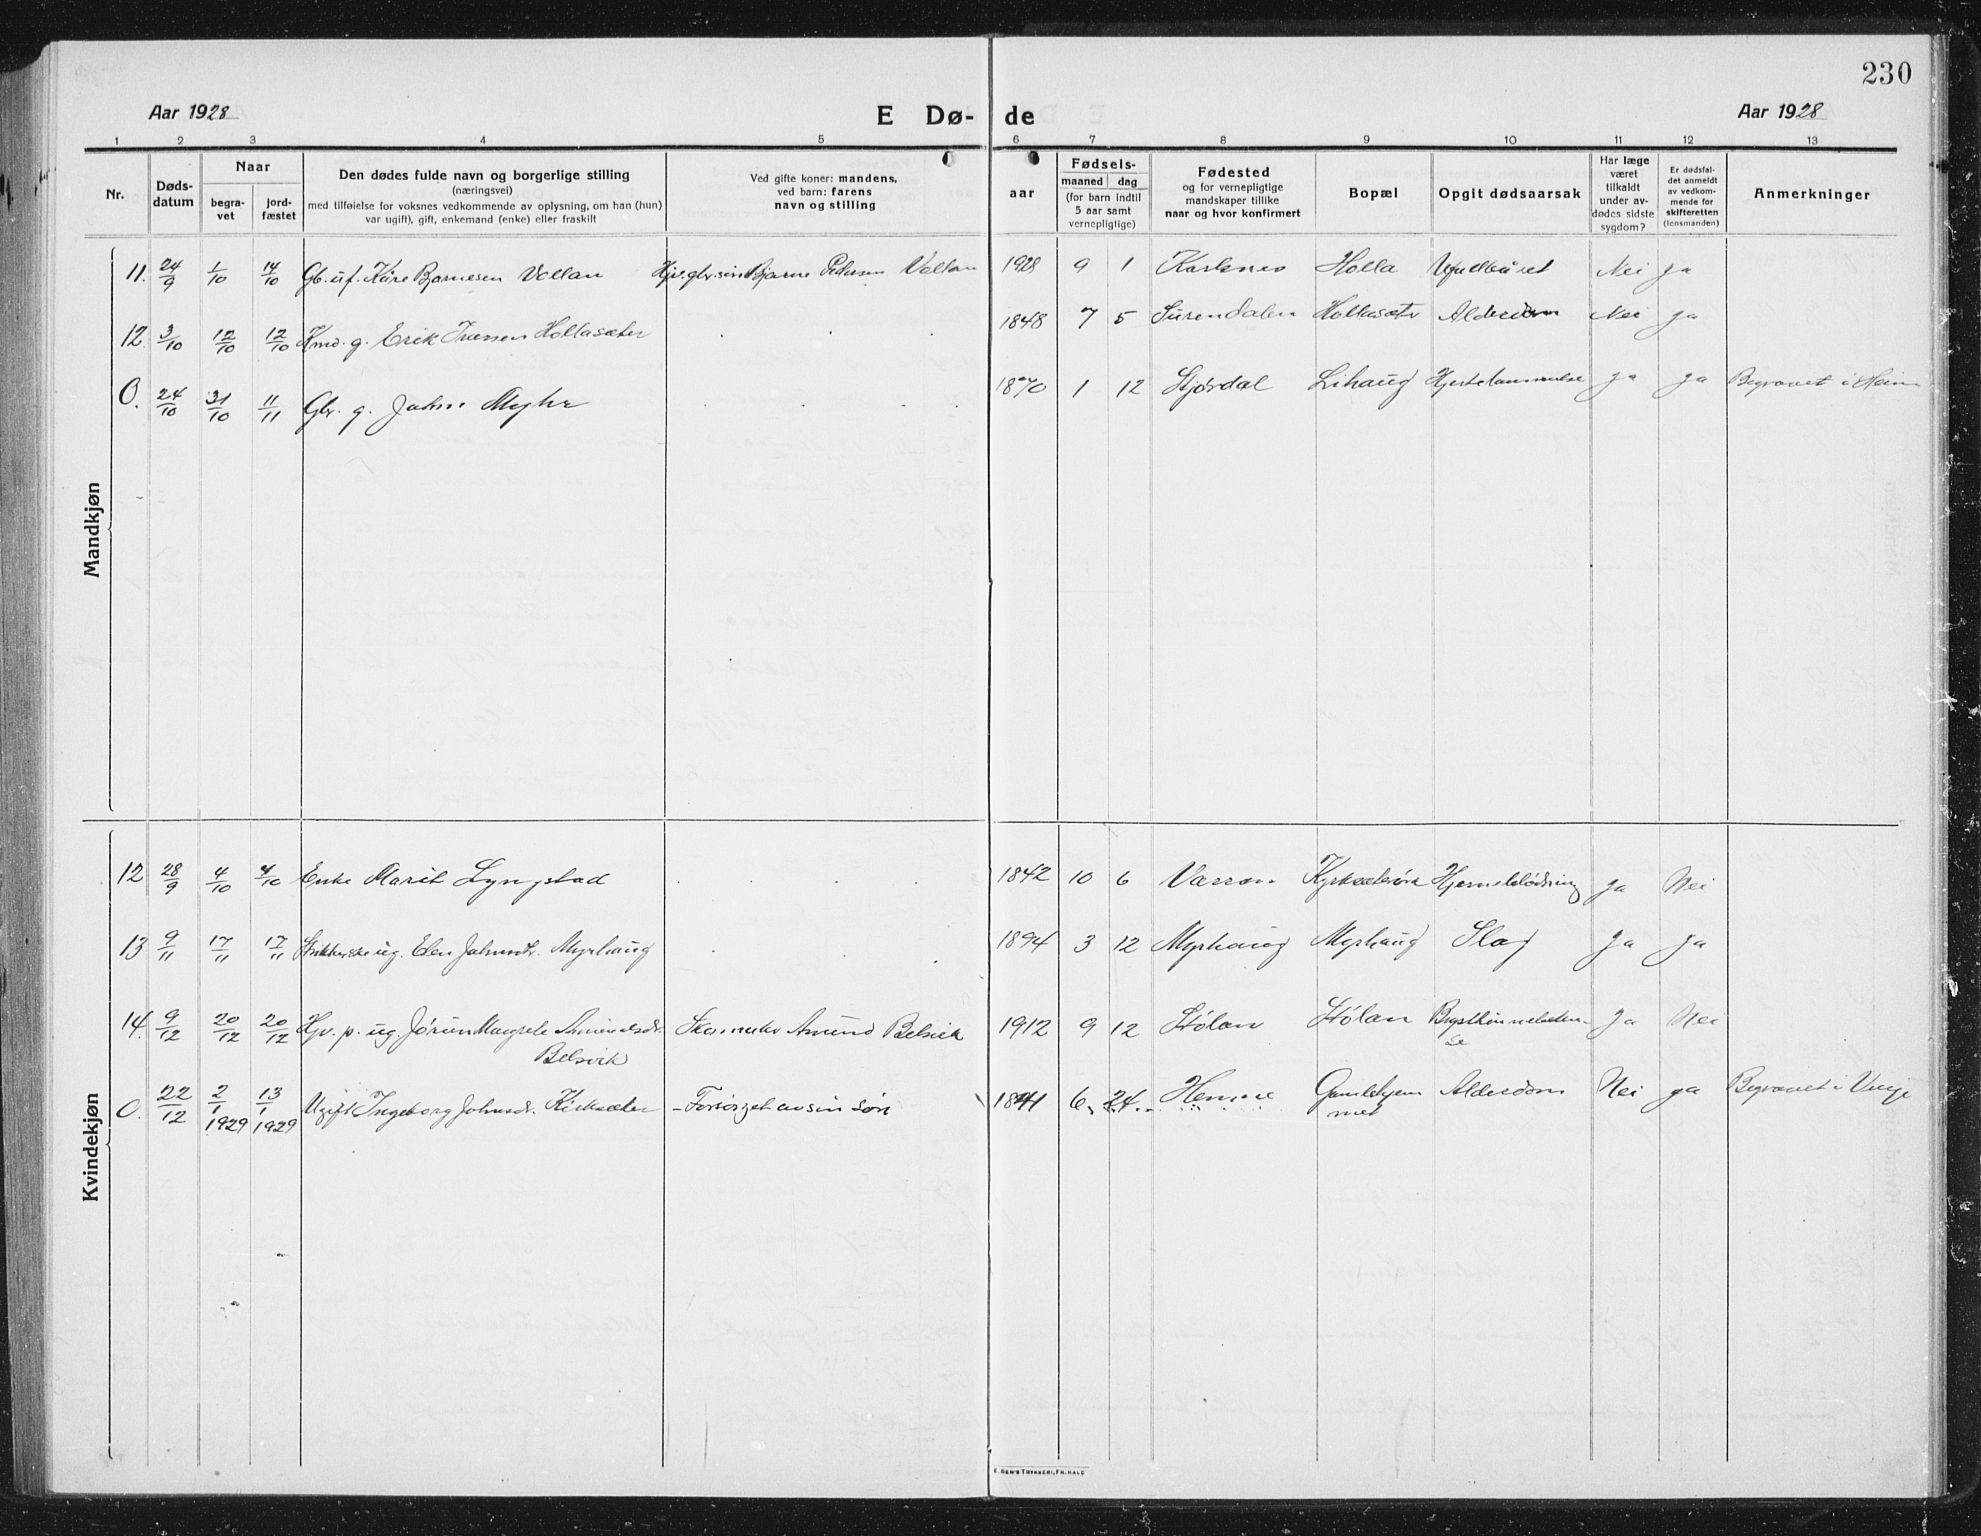 230
Aar 1928
E Dø-
de
Aar 1928
1 2 3 4 5 6 7 8 9 10 11 12 13
Nr.
Døds-
datum
Naar
begra-
vet
jord-
fæstet
Den dødes fulde navn og borgerlige stilling
(næringsvei)
med tilføielse for voksnes vedkommende av oplysning, om han (hun)
var ugift), gift, enkemand (enke) eller fraskilt
Ved gifte koner: mandens,
ved barn: farens
navn og stilling
aar
Fødsels-
maaned dag
(for barn indtil
5 aar samt
vernepligtige)
Fødested
og for vernepligtige
mandskaper tillike
naar og hvor konfirmert
Bopæl
Opgit dødsaarsak
Har læge
været
tilkaldt
under av-
dødes sidste
sygdom?
Er dødsfal-
det anmeldt
av vedkom-
mende for
skifteretten
(lensmanden)
Anmerkninger
Mandkjøn
11. 24/9 1/10 14/10 Gb. u.f. Kåre Bjarnesen Vollan Bjarne Pedersen Vollan 1928 9 1 Karlsnes Holla Nei ja
12 3/10 12/10 12/10 Kmd. g. Erik Iversen Hollasæter 1848 7 5 Surendalen Hollasæter Alderdom Nei ja
0. 24/10 31/10 11/11 Gbr. g. Johan Myhr 1870 1 12 Stjørdal Lihaug Hjertelammelse ja ja Begravet i Heim
Kvindekjøn
12 28/9 4/10 4/10 Enke Marit Lyngstad 1842 10 6 Kyrksæterøra Hjerneblødning ja Nei
13 9/11 17/11 17/11 ug. Elen Johnsdtr. Myrhaug 1894 3 12 Myrhaug Myrhaug Slag ja ja
14. 9/12 20/12 20/12 Hjv. p. ug Jørun Margrete Amundsdtr. Skomaker Amund Belsvik 1912 9 12 Stølan Stølan Brysthinnebeten- ja Nei
Belsvik
se
0. 22/12 2/1 1929 13/1 1929 Ugift Ingeborg Johnsdr. Kirksæter - Forsørget av sin søn 1841 6. 24. Hemne Gamlehjem Alderdom Nei ja Begravet i Vinje
met
E. SEM'S TRYKKERI, FR.HALD